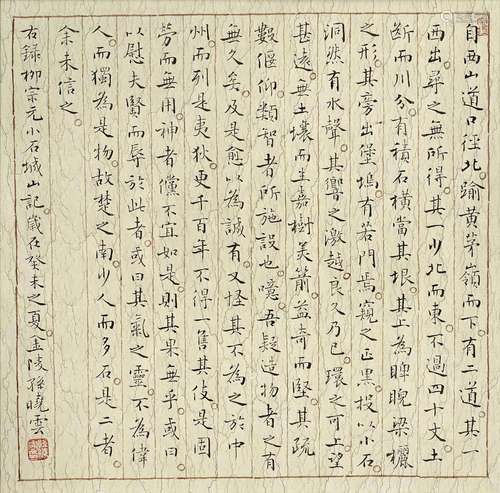 自西山道口徑北踰黃茅嶺而下有二道其一
西出尋之無所得其一少北而東不過四十丈土
斷而川分有積石橫當其垠其上為睥睨梁欐
之形其旁出堡塢有若門焉窺之正黑投以小石
洞然有水聲其響之激越良久乃已環之可上望
甚遠無土壤而生嘉樹美箭益奇而堅其疏
數偃仰類智者所施設也噫吾疑造物者之有
無久矣及是愈以為誠有又怪其不為之於中
州而列是夷狄更千百年不得一售其伎是固
勞而無用神者儻不宜如是則其果無乎或曰
以慰夫賢而辱於此者或曰其氣之靈不為偉
人而獨為是物故楚之南少人而多石是二者
余未信之
右錄柳宗元小石城山記歲在癸未之夏金陵孫曉雲